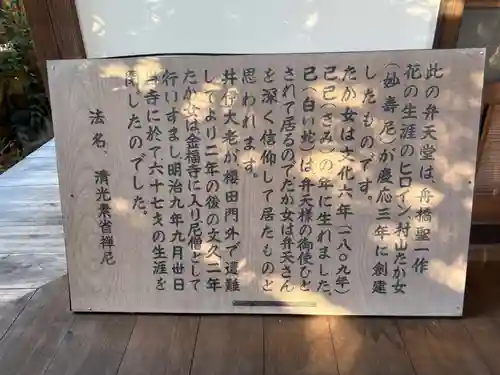 此の弁天堂は、舟橋聖一作
花の生涯のヒロイン、村山たか女
(妙寿尼)が慶応三年に創建
したものです。
たか女は文化六年(一八〇九年)
己巳(きみ)の年に生れました、
巳(白い蛇)は弁天様の御使ひと
されて居るのでたか女は弁天さん
を深く信仰して居たものと
思われます。
井伊大老が桜田門外で遭難
してより二年の後の文久二年
たか女は金福寺に入り尼僧として
行いすまし明治九年九月卅日
当寺に於て六十七才の生涯を
閉したのでした。
法名、清光素省禅尼